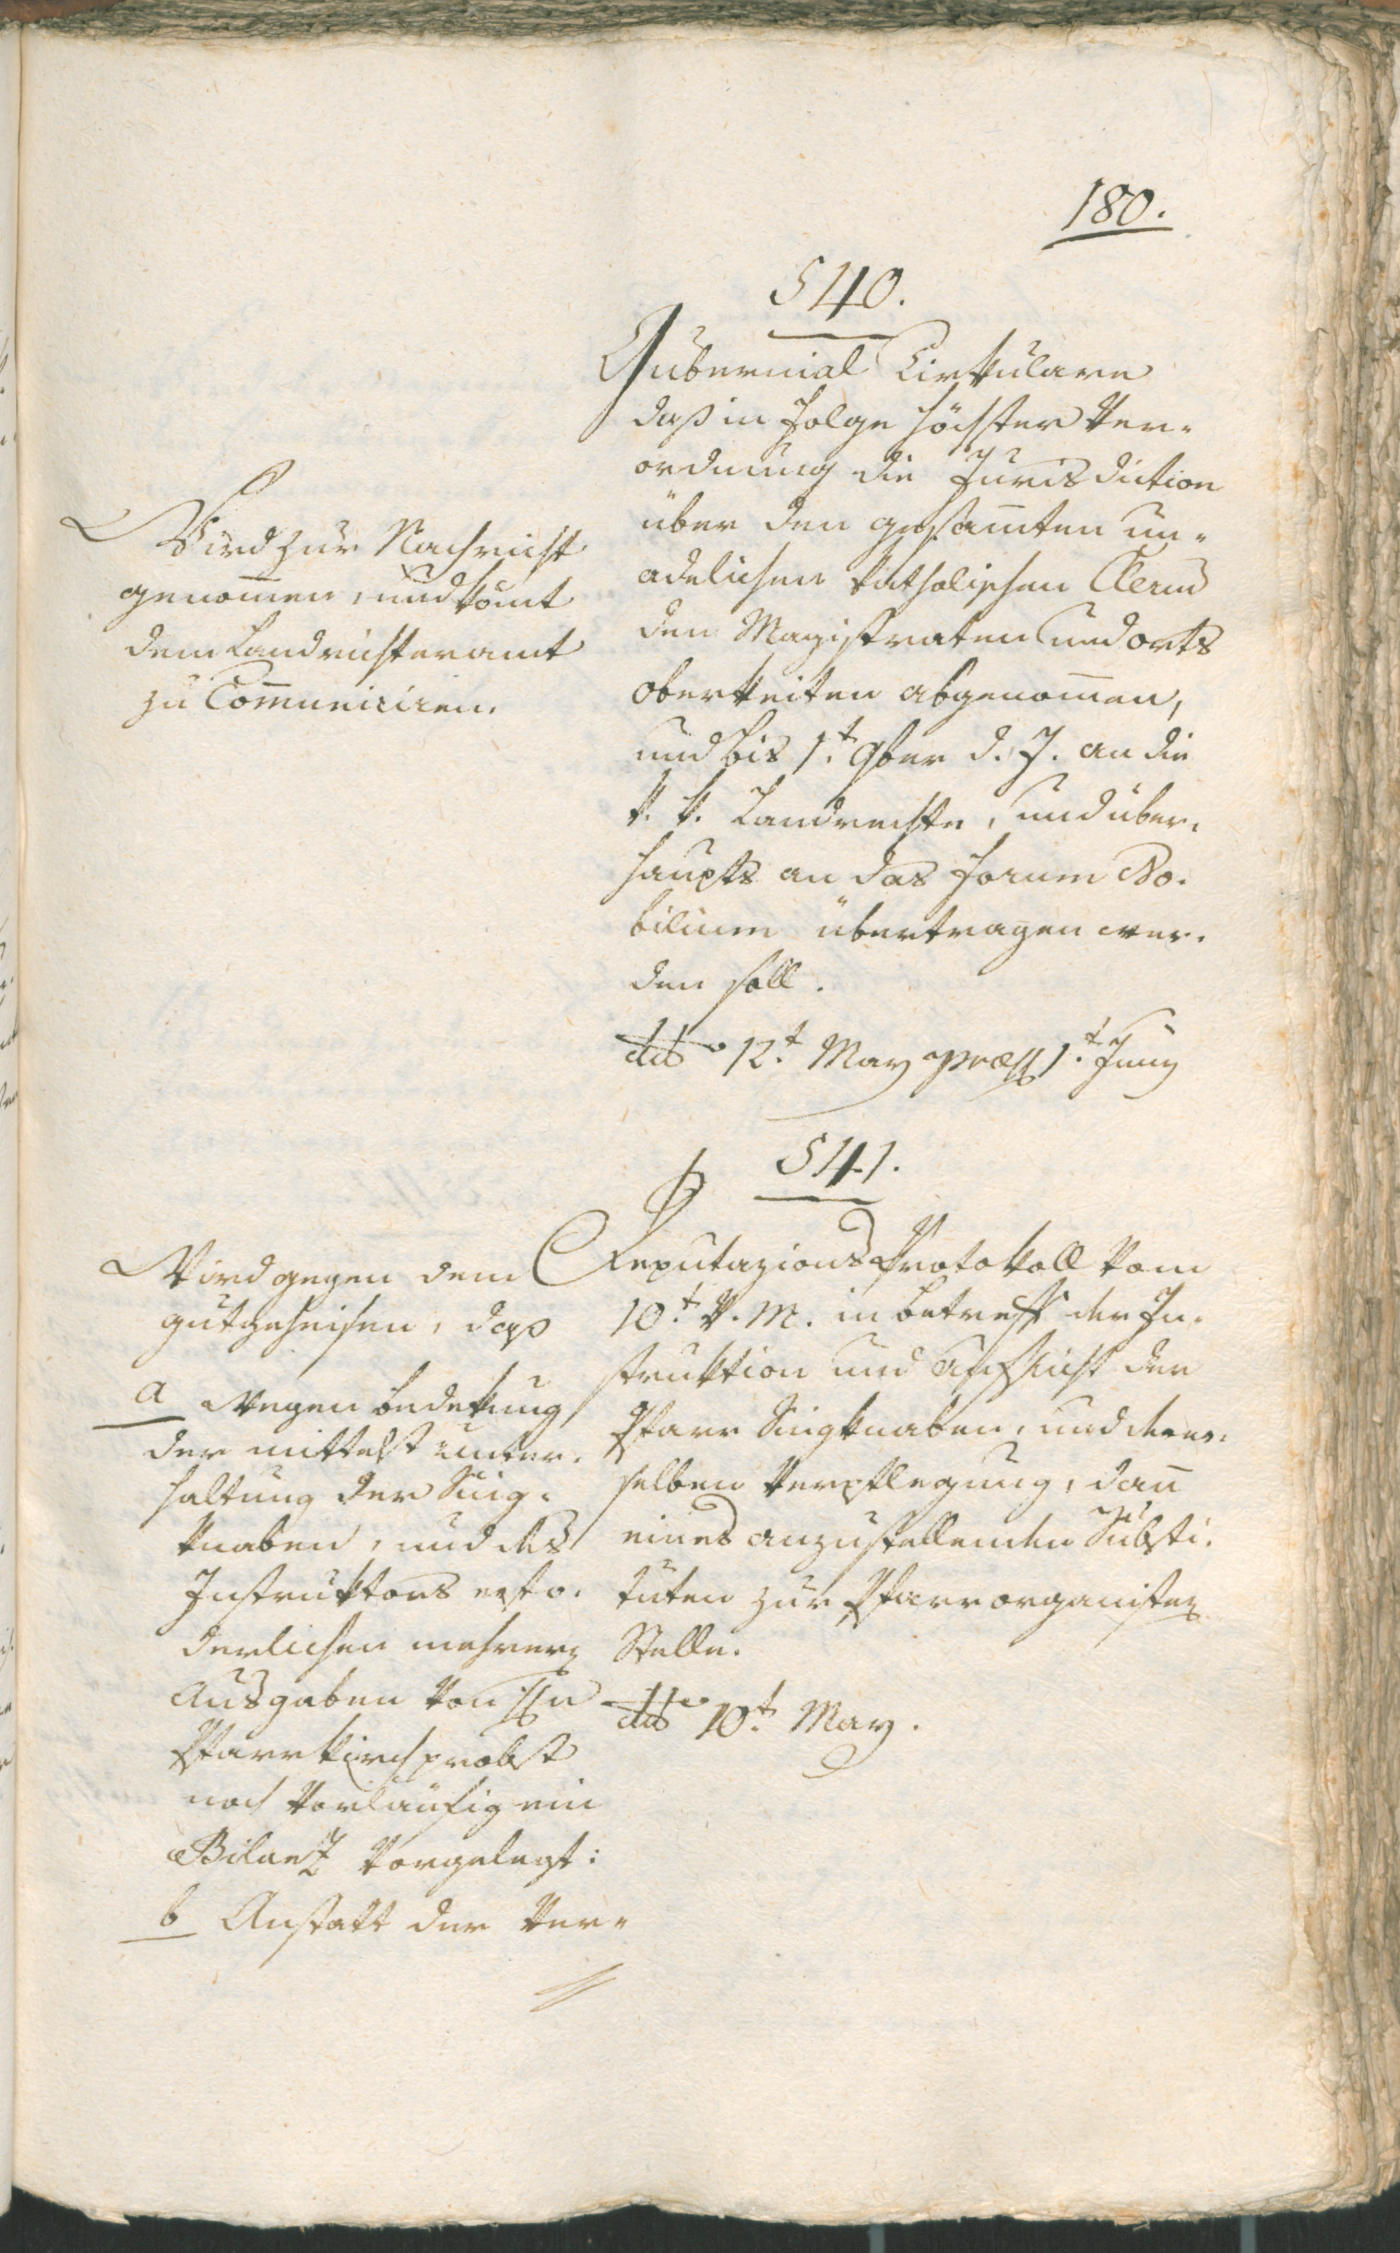 180.
540.
Gubernial Cirkulare
daß in Folge höchster Ver-
ordnung die Jurisdiction
über den gesam̄ten un-
adelichen katholischen Clerus
den Magistraten und orts
oberkeiten abgenom̄en,
und bis 1.t 9ber d. J. an die
k. k. Landrechte, und über-
haupts an das Forum No-
bilium übertragen wer-
den soll.
dto 12.t May præs 1.t Juny
Wird zur Nachricht
genom̄en, und kom̄t
dem Landrichteramt
zu Com̄uniciren.
541.
Deputazions Protokoll vom
10.t v. M. in betreff der In-
struktion und Aufsicht der
Pfarr Singknaben, und der-
selben Verpflegung, dan̄
eines anzustellenden Substi-
tuten zur Pfarrorganisten
Stelle.
dto 10.t May.
Wird gegen dem
gutgeheisen, daß
a wegen bedekung
der mittelst unter-
haltung der Sing-
knaben, und des
Instruktors erfo-
derlichen mehrern
Ausgaben von Hn
Pfarrkirchprobst
noch vorläufig ein
Bilanz vorgelegt:
b Anstatt der Ver-